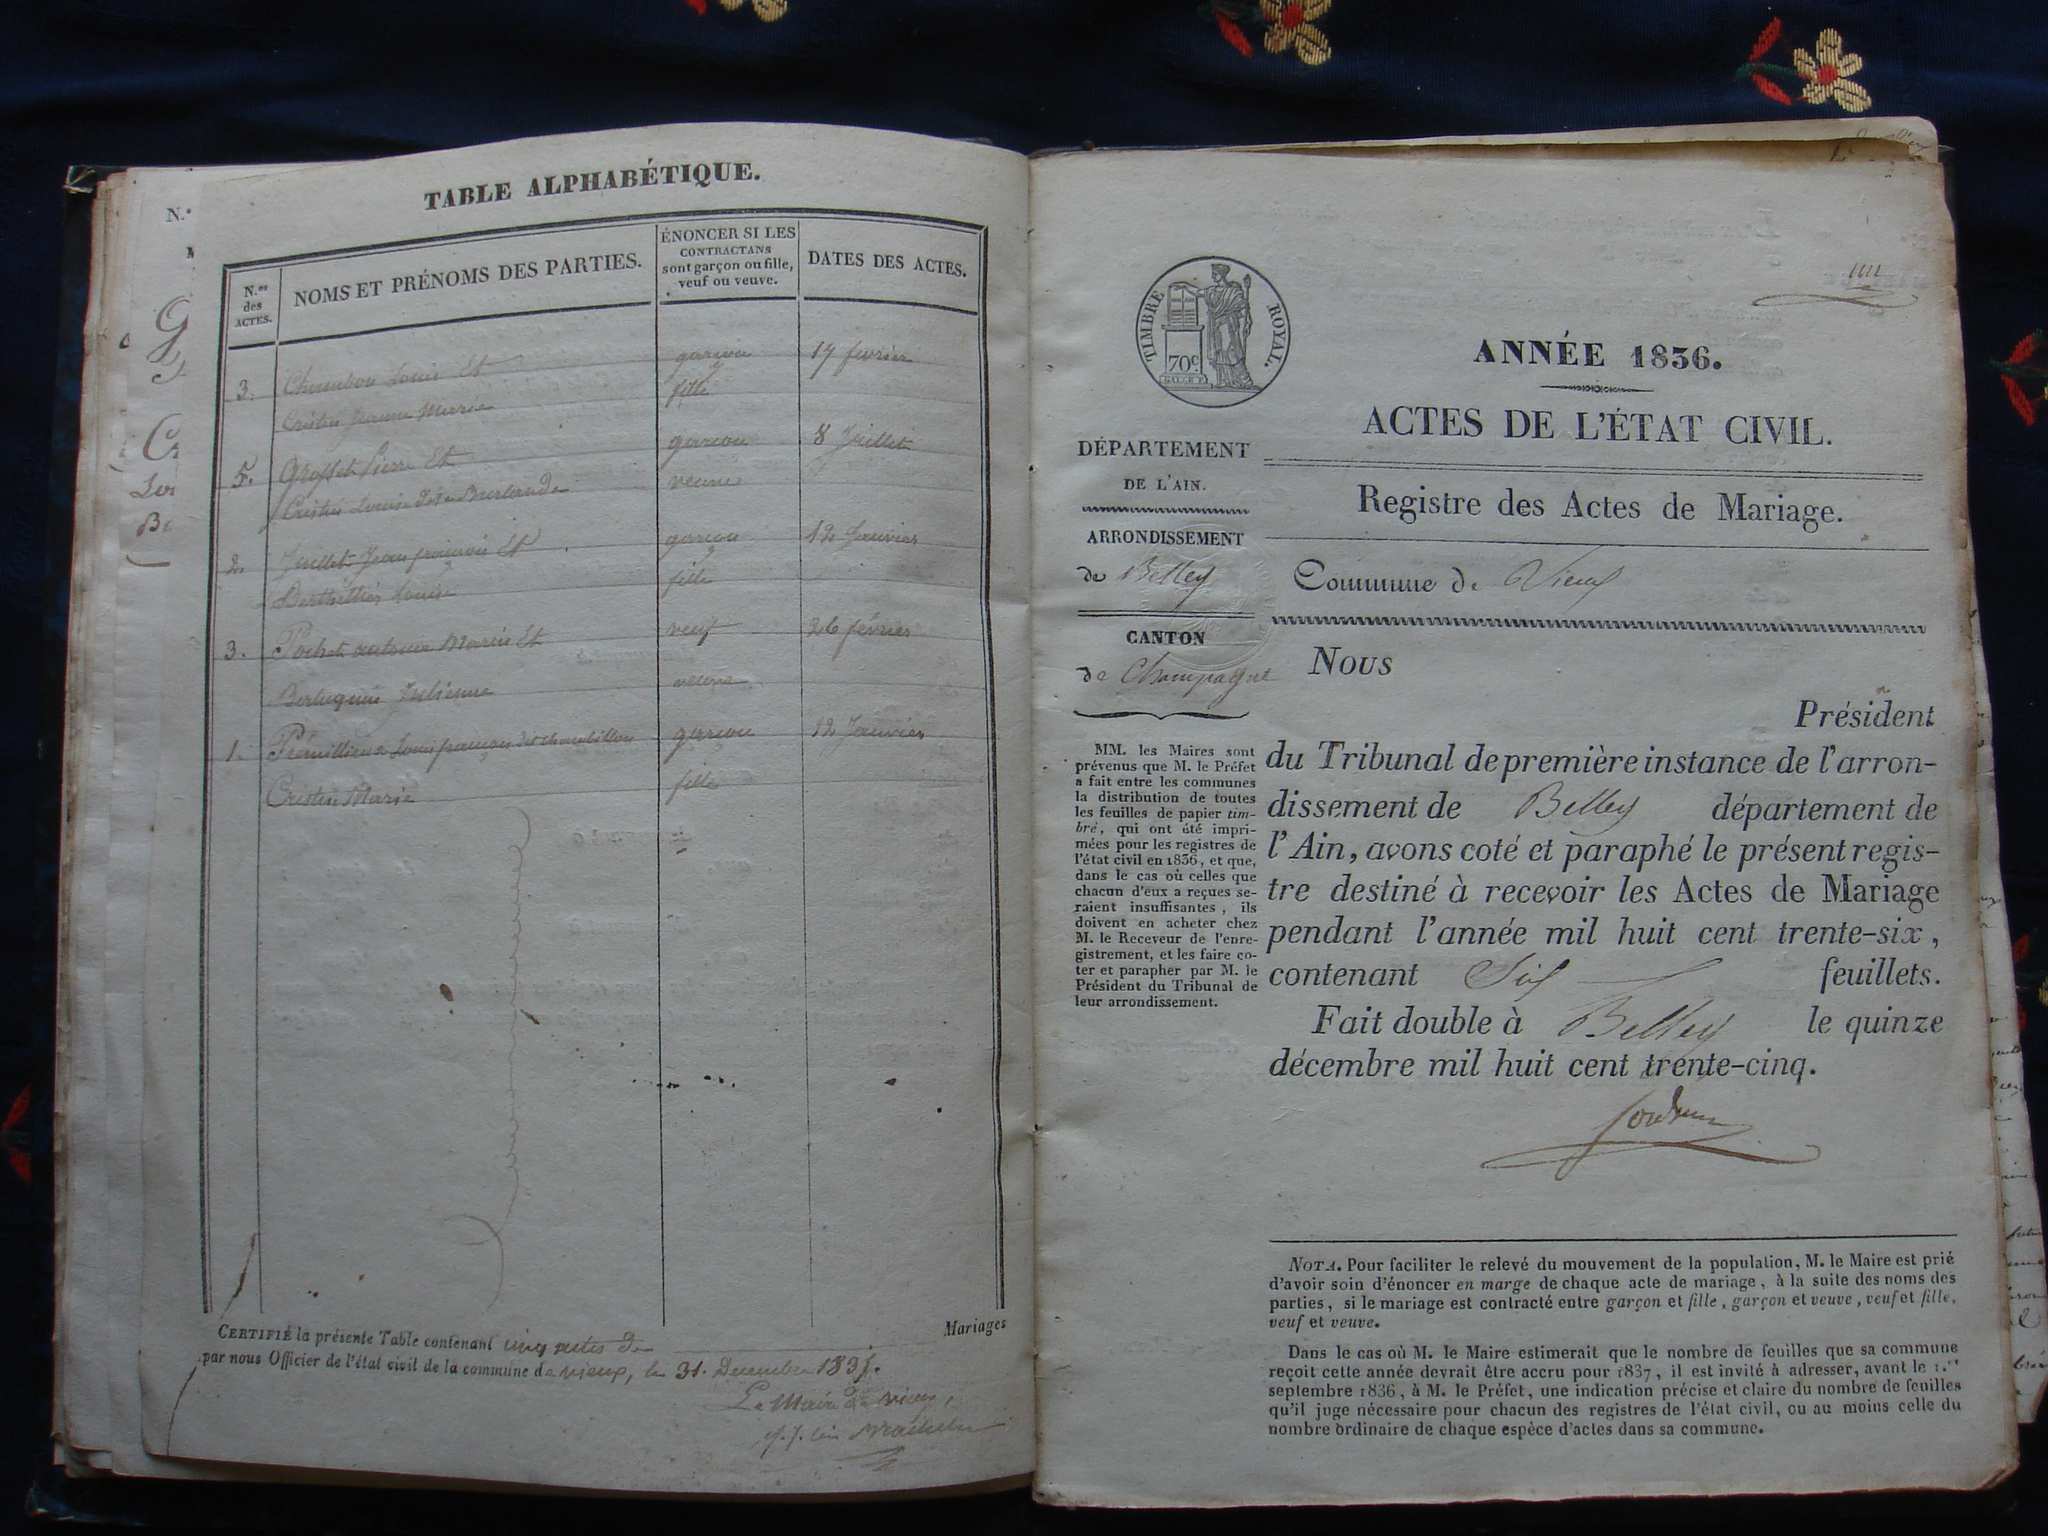 TABLE ALPHABÉTIQUE.
N.os des ACTES.
NOMS ET PRÉNOMS DES PARTIES.
ÉNONCER SI LES
CONTRACTANS
sont garçon ou fille,
veuf ou veuve.
DATES DES ACTES.
3. Louis Et garçon 17 fevrier
Cristin Jeanne Marie fille
5. Pierre Et garçon 8 Juillet
Cristin Louise veuve
2. Juillet Jean françois Et garçon 12 Janvier
Berthellier Louise fille
3. Pochet Marin Et veuf 26 février
Julienne veuve
1. Louis françois dit garçon 12 Janvier
Cristin Marie fille
Mariages
CERTIFIÉ la présente Table contenant cinq actes de
par nous Officier de l'état civil de la commune de vieux, le 31. Decembre 1835.
Le Maire de vieux,
N.º
TIMBRE ROYAL.
70c
ANNÉE 1836.
ACTES DE L'ÉTAT CIVIL.
Registre des Actes de Mariage.
DÉPARTEMENT
DE L'AIN.
ARRONDISSEMENT
de Belley
CANTON
de Champagne
Commune de Vieux
MM. les Maires sont
prévenus que M. le Préfet
a fait entre les communes
la distribution de toutes
les feuilles de papier tim-
bré, qui ont été impri-
mées pour les registres de
l'état civil en 1836, et que,
dans le cas où celles que
chacun d'eux a reçues se-
raient insuffisantes, ils
doivent en acheter chez
M. le Receveur de l'enre-
gistrement, et les faire co-
ter et parapher par M. le
Président du Tribunal de
leur arrondissement.
Nous
Président
du Tribunal de première instance de l'arron-
dissement de Belley département de
l'Ain, avons coté et paraphé le présent regis-
tre destiné à recevoir les Actes de Mariage
pendant l'année mil huit cent trente-six,
contenant Six feuillets.
Fait double à Belley le quinze
décembre mil huit cent trente-cinq.
NOTA. Pour faciliter le relevé du mouvement de la population, M. le Maire est prié
d'avoir soin d'énoncer en marge de chaque acte de mariage, à la suite des noms des
parties, si le mariage est contracté entre garçon et fille, garçon et veuve, veuf et fille,
veuf et veuve.
Dans le cas où M. le Maire estimerait que le nombre de feuilles que sa commune
reçoit cette année devrait être accru pour 1837, il est invité à adresser, avant le 1.er
septembre 1836, à M. le Préfet, une indication précise et claire du nombre de feuilles
qu'il juge nécessaire pour chacun des registres de l'état civil, ou au moins celle du
nombre ordinaire de chaque espèce d'actes dans sa commune.